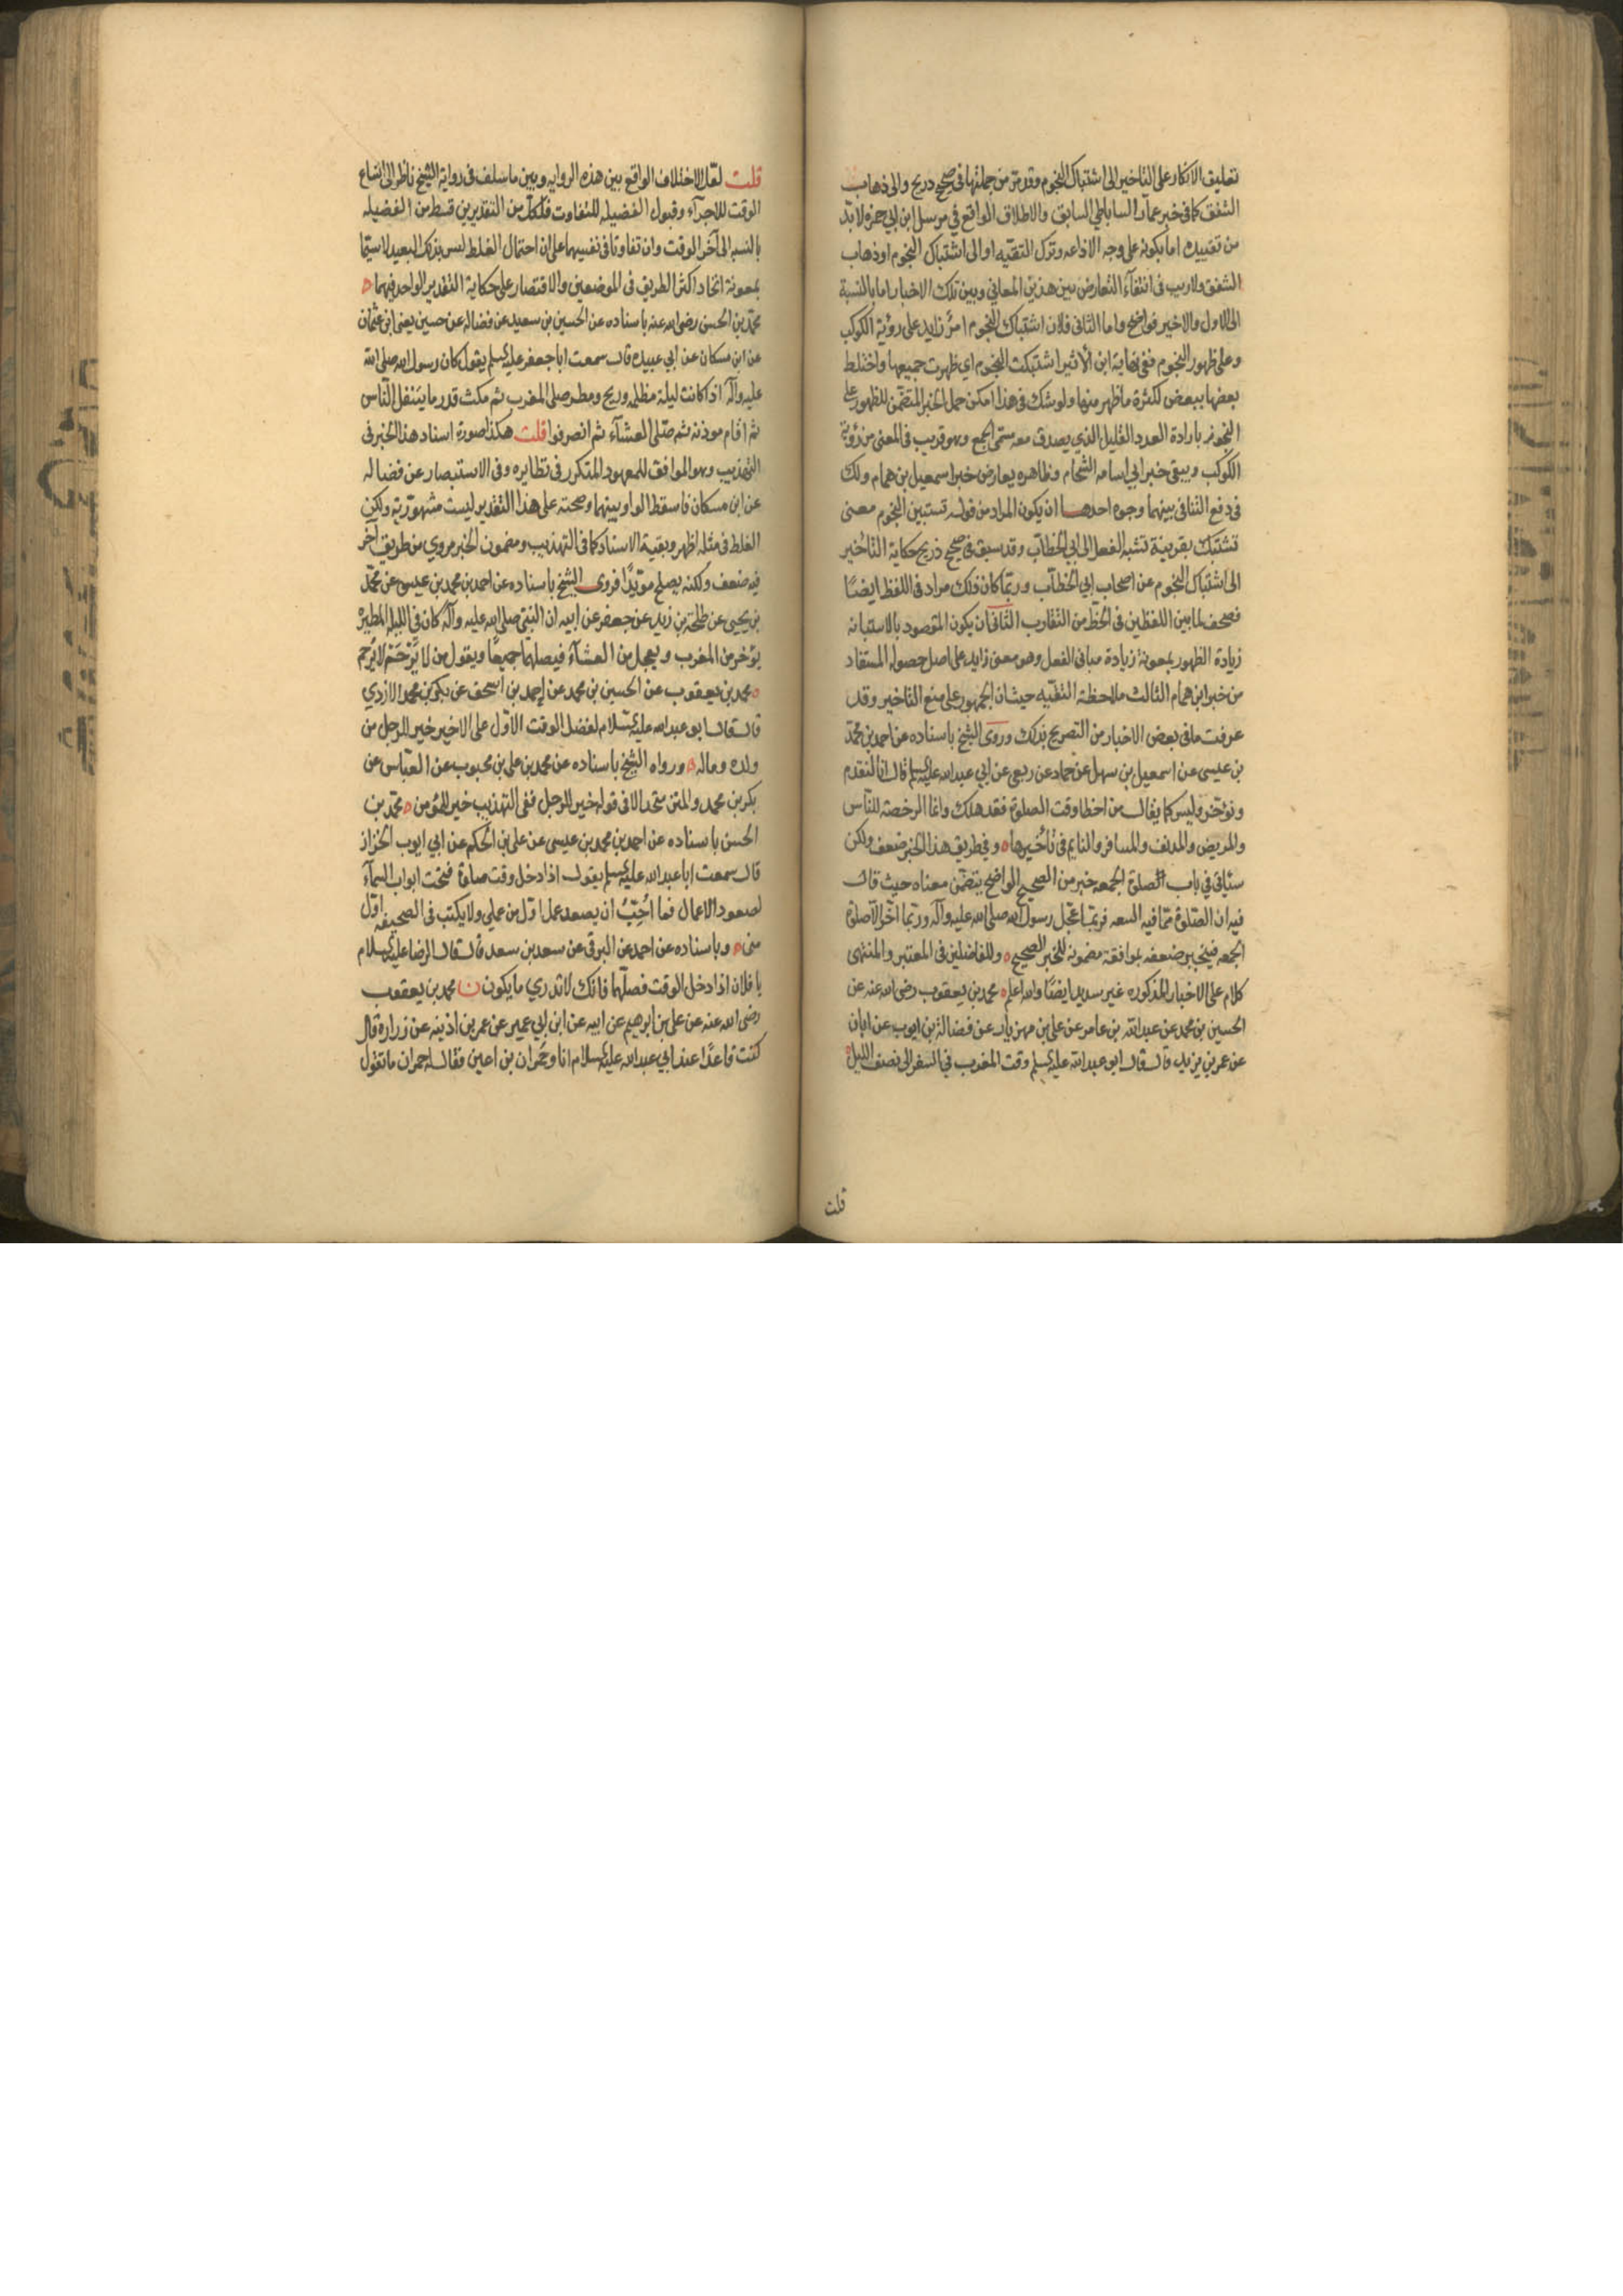 تعليق الانكار على التاخير الى اشتباك النجوم وقد مر من جملتها في صحيح ذريح والى ذهاب
الشفق كما في خبر عمار الساباطي السابق والاطلاق الواقع في مرسل ابن ابي حمزه لا بدّ
من تقييده اما بكونه على وجه الاذاعه وترك التقيّه او الى اشتباك النجوم او ذهاب
الشفق ولا ريب في انتفآء التعارض بين هذين المعاني وبين تلك الاخبار اما بالنسبة
الى الاول والاخير فواضح واما الثاني فلان اشتباك النجوم امرٌ زايد على رؤية الكوكب
وعلى ظهور النجوم ففي نهاية ابن الأثير اشتبكت النجوم اي ظهرت جميعها واختلط
بعضها ببعض لكثرة ما ظهر منها ولو شك في هذا امكن حمل الخبر المتضمّن للظهور على
التجوز بارادة العدد القليل الذي يصدق معه مسمّى الجمع وهو قريب في المعنى من رؤية
الكوكب ويبقى خبر ابي اسامه الشحّام وظاهره يعارض خبر اسمعيل بن همام ولك
في دفع التنافي بينهما وجوه احدهـا ان يكون المراد من قوله تستبين النجوم معنى
تشتبك بقرينة نسبة الفعل الى ابي الخطاب وقد سبق في صحيح ذريح حكاية التاخير
الى اشتباك النجوم عن اصحاب ابي الخطاب وربّما كان ذلك مراد في اللفظ ايضًا
فصحف لما بين اللفظين في الخط من التقارب الثاني ان يكون المقصود بالاستبانه
زيادة الظهور بمعونة زيادة مباني الفعل وهو معنى زايد على اصل حصوله المستفاد
من خبر ابن همام الثالث ملاحظة التقيّه حيث ان الجمهور على منع التاخير وقد
عرفت ما في بعض الاخبار من التصريح بذلك وروى الشيخ باسناده عن احمد بن محمّد
بن عيسى عن اسمعيل بن سهل عن حماد عن ربعي عن ابي عبد الله عليه السلم قال انا لنقدم
ونؤخر وليس كما يقال من اخطا وقت الصلوة فقد هلك وانما الرخصة للناس
والمريض والمدنف والمسافر والنايم في تأخيرها ٥ وفي طريق هذا الخبر ضعف ولكن
سيأتي في باب الصلوة الجمعه خبر من الصحيح الواضح يتضمّن معناه حيث قال
فيه ان الصّلوة ممّا فيه السعه فربّما عجّل رسول الله صلى الله عليه وآله وربّما اخّر الّا صلوة
الجمعه فينجبر ضعفه بموافقة مضمونه للخبر الصحيح ٥ وللفاضلين في المعتبر والمنتهى
كلام على الاخبار المذكوره غير سديد ايضًا والله اعلم ٥ محمد بن يعقوب رضي الله عنه عن
الحسين بن محمد عن عبد الله بن عامر عن علي بن مهزيار عن فضالة بن ايوب عن ابان
عن عمر بن يزيد قال قال ابو عبد الله عليه السلم وقت المغرب في السفر الى نصف الليل ٥
قلت
قلت لعّل الاختلاف الواقع بين هذه الروايه وبين ما سلف في رواية الشيخ ناظر الى اتساع
الوقت للاجزآء وقبول الفضيله للتفاوت فلكل من التقديرين قسط من الفضيله
بالنسبه الى آخر الوقت وان تفاوتا في نفسيهما على ان احتمال الغلط ليس بذلك البعيد لا سيّما
بمعونة اتحاد اكثر الطريق في الموضعين والاقتصار على حكاية التقدير الواحد فيهما ٥
محمّد بن الحسن رضي الله عنه باسناده عن الحسين بن سعيد عن فضاله عن حسين يعني ابن عثمان
عن ابن مسكان عن ابي عبيده قال سمعت ابا جعفر عليه السلم يقول كان رسول الله صلى الله
عليه وآله اذا كانت ليلة مظلمه وريح ومطر صلى المغرب ثم مكث قدر ما يتنفل النّاس
ثم اقام موذنه ثم صلّى العشآء ثم انصرفوا قلت هكذا صورة اسناد هذا الخبر في
التهذيب وهو الموافق للمعهود المتكرر في نظايره وفي الاستبصار عن فضاله
عن ابن مسكان فاسقط الواو بينهما وصحته على هذا التقدير ليست مشهوريّة ولكن
الغلط في مثله اظهر وبقية الاسناد كما في التهذيب ومضمون الخبر مروي من طريق آخر
فيه ضعف ولكنه يصلح مويّدًا فروى الشيخ باسناده عن احمد بن محمد بن عيسى عن محمّد
بن يحيى عن طلحة بن زيد عن جعفر عن ابيه ان النبيّ صلى الله عليه وآله كان في الليلة المطيرة
يؤخر من المغرب ويعجل من العشآء فيصليهما جميعًا ويقول من لا يَرْحَمْ لا يُرحم
٥ محمد بن يعقوب عن الحسين بن محمد عن احمد بن اسحق عن بكر بن محمد الازدي
قال قال ابو عبد الله عليه السّلام لفضل الوقت الاوّل على الاخير خير للرجل من
ولده وماله ٥ ورواه الشيخ باسناده عن محمد بن علي بن محبوب عن العبّاس عن
بكر بن محمد والمتن متحد الا في قوله خير للرجل ففي التهذيب خير للمؤمن ٥ محمّد بن
الحسن باسناده عن احمد بن محمد بن عيسى عن علي بن الحكم عن ابي ايوب الخزاز
قال سمعت ابا عبد الله عليه السلم يقول اذا دخل وقت صلوة فتحت ابواب السمآء
لصعود الاعمال فما اُحِبُّ ان يصعد عمل اوّل من عملي ولا يكتب في الصحيفه اوّل
منى ٥ وباسناده عن احمد عن البرقي عن سعد بن سعد قال قال الرضا عليه السلام
يا فلان اذا دخل الوقت فصلّها فانك لا تدري ما يكون ن محمد بن يعقوب
رضي الله عنه عن علي بن ابرهيم عن ابيه عن ابن ابي عمير عن عمر بن اذينه عن زرارة قال
كنت قاعدًا عند ابي عبد الله عليه السلام انا وحُمران بن اعين فقال له حمران ما تقول